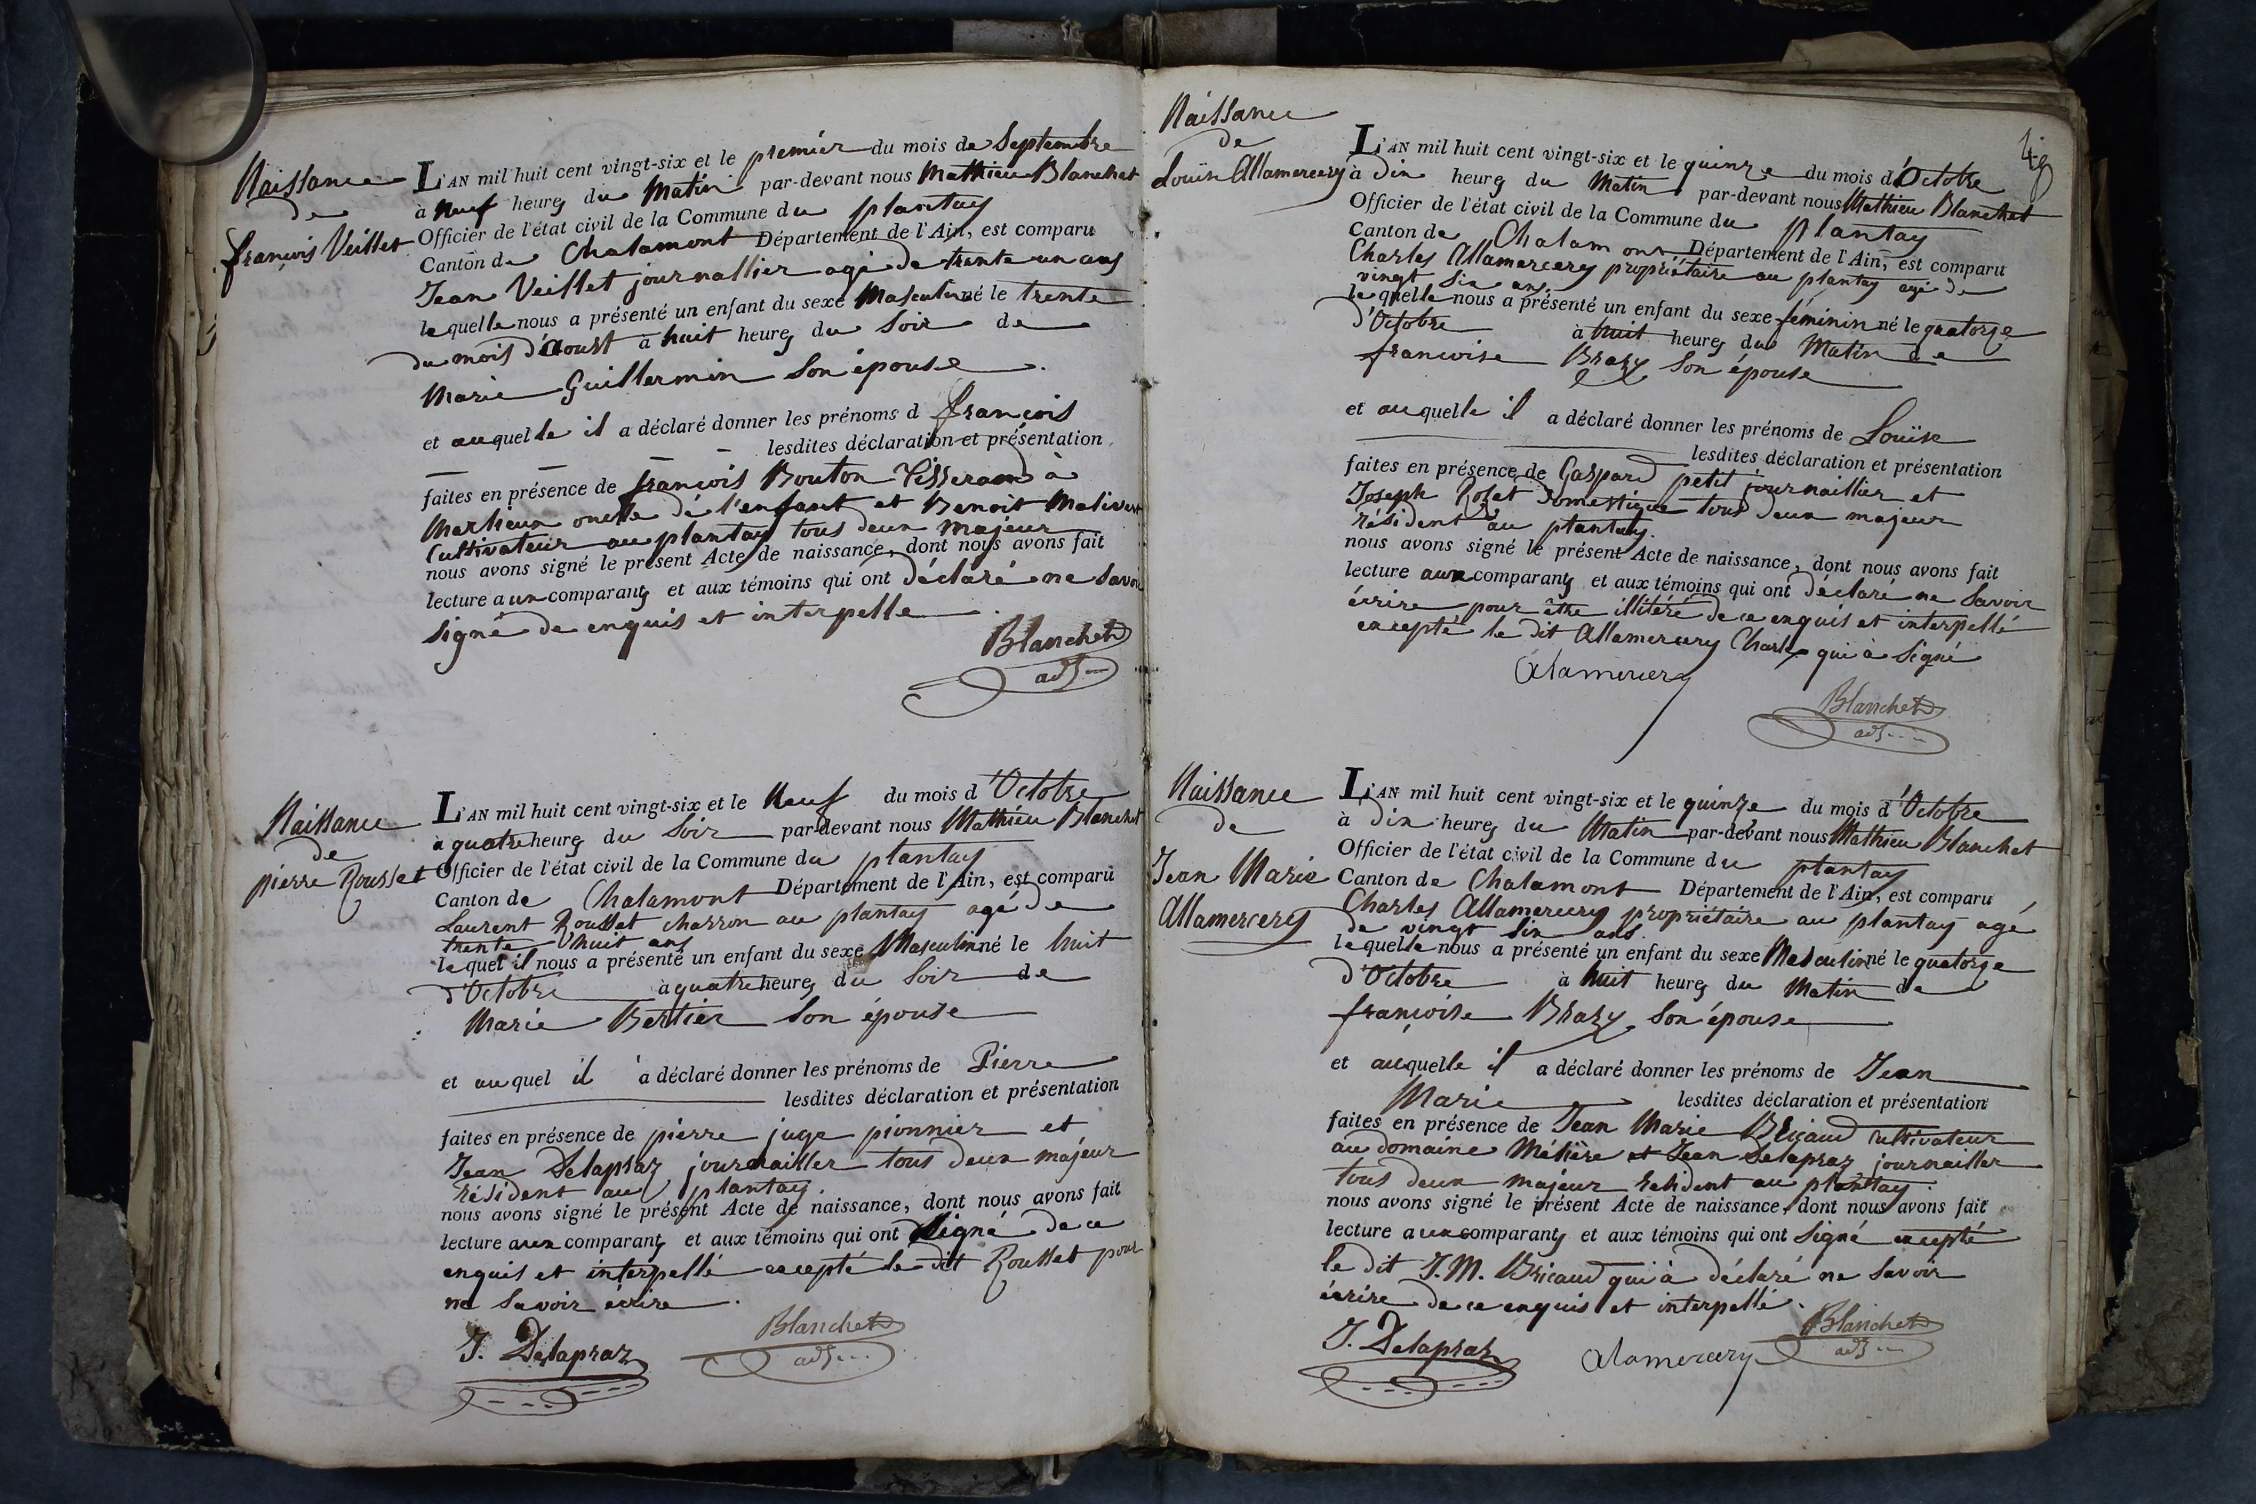 Naissance
de
françois Veillet
L'AN mil huit cent vingt-six et le premiér du mois de Septembre
à Neuf heures du Matin par-devant nous Mathieu Blanchet
Officier de l'état civil de la Commune du plantay
Canton de Chalamont Département de l'Ain, est comparu
Jean Veillet journallier agé de trente un ans
lequelle nous a présenté un enfant du sexe Masculin né le trente
du mois d'Aoust à huit heures du Soir de
Marie Guillermin Son épouse
et auquelle il a déclaré donner les prénoms d françois
lesdites déclaration et présentation
faites en présence de françois Bouton Tisserand à
Marlieux oncle dé l'enfant et Benoit Malivert
Cultivateur au plantay tous deux majeur
nous avons signé le présent Acte de naissance, dont nous avons fait
lecture aux comparants et aux témoins qui ont déclaré ne Savoir
Signé de enquis et interpelle
Blanchet
adj
Naissance
de
pierre Rousset
L'AN mil huit cent vingt-six et le Neuf du mois d'Octobre
à quatre heures du Soir par-devant nous Mathiéu Blanchet
Officier de l'état civil de la Commune du plantay
Canton de Chalamont Département de l'Ain, est comparu
Laurent Rousset charron au plantay agé de
trente huit ans
lequel il nous a présenté un enfant du sexe Masculin né le huit
d'Octobre à quatre heures du Soir de
Marie Bertier Son épouse
et auquel il à déclaré donner les prénoms de Pierre
lesdites déclaration et présentation
faites en présence de pierre juge pionnier et
Jean Delapraz journailler tous deux majéur
résident au plantay
nous avons signé le présent Acte de naissance, dont nous avons fait
lecture aux comparants et aux témoins qui ont Signé de ce
enquis et interpellé excepté le dit Rousset pour
ne Savoir écrire
J. Delapraz
Blanchet
adj
Naissance
de
Louïse Allamercery
L'AN mil huit cent vingt-six et le quinze du mois d'Octobre
à dix heures du Matin par-devant nous Mathieu Blanchet
Officier de l'état civil de la Commune du plantay
Canton de Chalamont Département de l'Ain, est comparu
Charles Allamercery propriétaire au plantay agé de
vingt Six ans
lequelle nous a présenté un enfant du sexe féminin né le quatorze
d'Octobre à huit heures du Matin de
francoise Brazy Son épouse
et auquelle il a déclaré donner les prénoms de Louïse
lesdites déclaration et présentation
faites en présence de Gaspard petit journaillier et
Joseph Rozet Domestique tous deux majeur
résident au plantay.
nous avons signé le présent Acte de naissance, dont nous avons fait
lecture aux comparants et aux témoins qui ont déclaré ne Savoir
écrire pour être illitéré de ce enquis et interpellé
excepté le dit Allamercery Charles qui à Signé
Alamercery
Blanchet
adj
Naissance
de
Jean Marie
Allamercery
L'AN mil huit cent vingt-six et le quinze du mois d'Octobre
à dix heures du Matin par-devant nous Mathieu Blanchet
Officier de l'état civil de la Commune du plantay
Canton de Chalamont Département de l'Ain, est comparu
Charles Allamercery propriétaire au plantay agé
de vingt Six ans
lequelle nous a présenté un enfant du sexe Masculin né le quatorze
d'Octobre à huit heures du Matin de
françoise Brazy Son épouse
et auquelle il a déclaré donner les prénoms de Jean
Marie lesdites déclaration et présentation
faites en présence de Jean Marie Bricaud cultivateur
au domaine Métière et Jean Delapraz journailler
tous deux majeur résident au plantay.
nous avons signé le présent Acte de naissance, dont nous avons fait
lecture aux comparants et aux témoins qui ont Signé excepté
le dit J. M. Bricaud qui à déclaré ne Savoir
écrire de ce enquis et interpellé.
J. Delapraz
Alamercery
Blanchet
adj